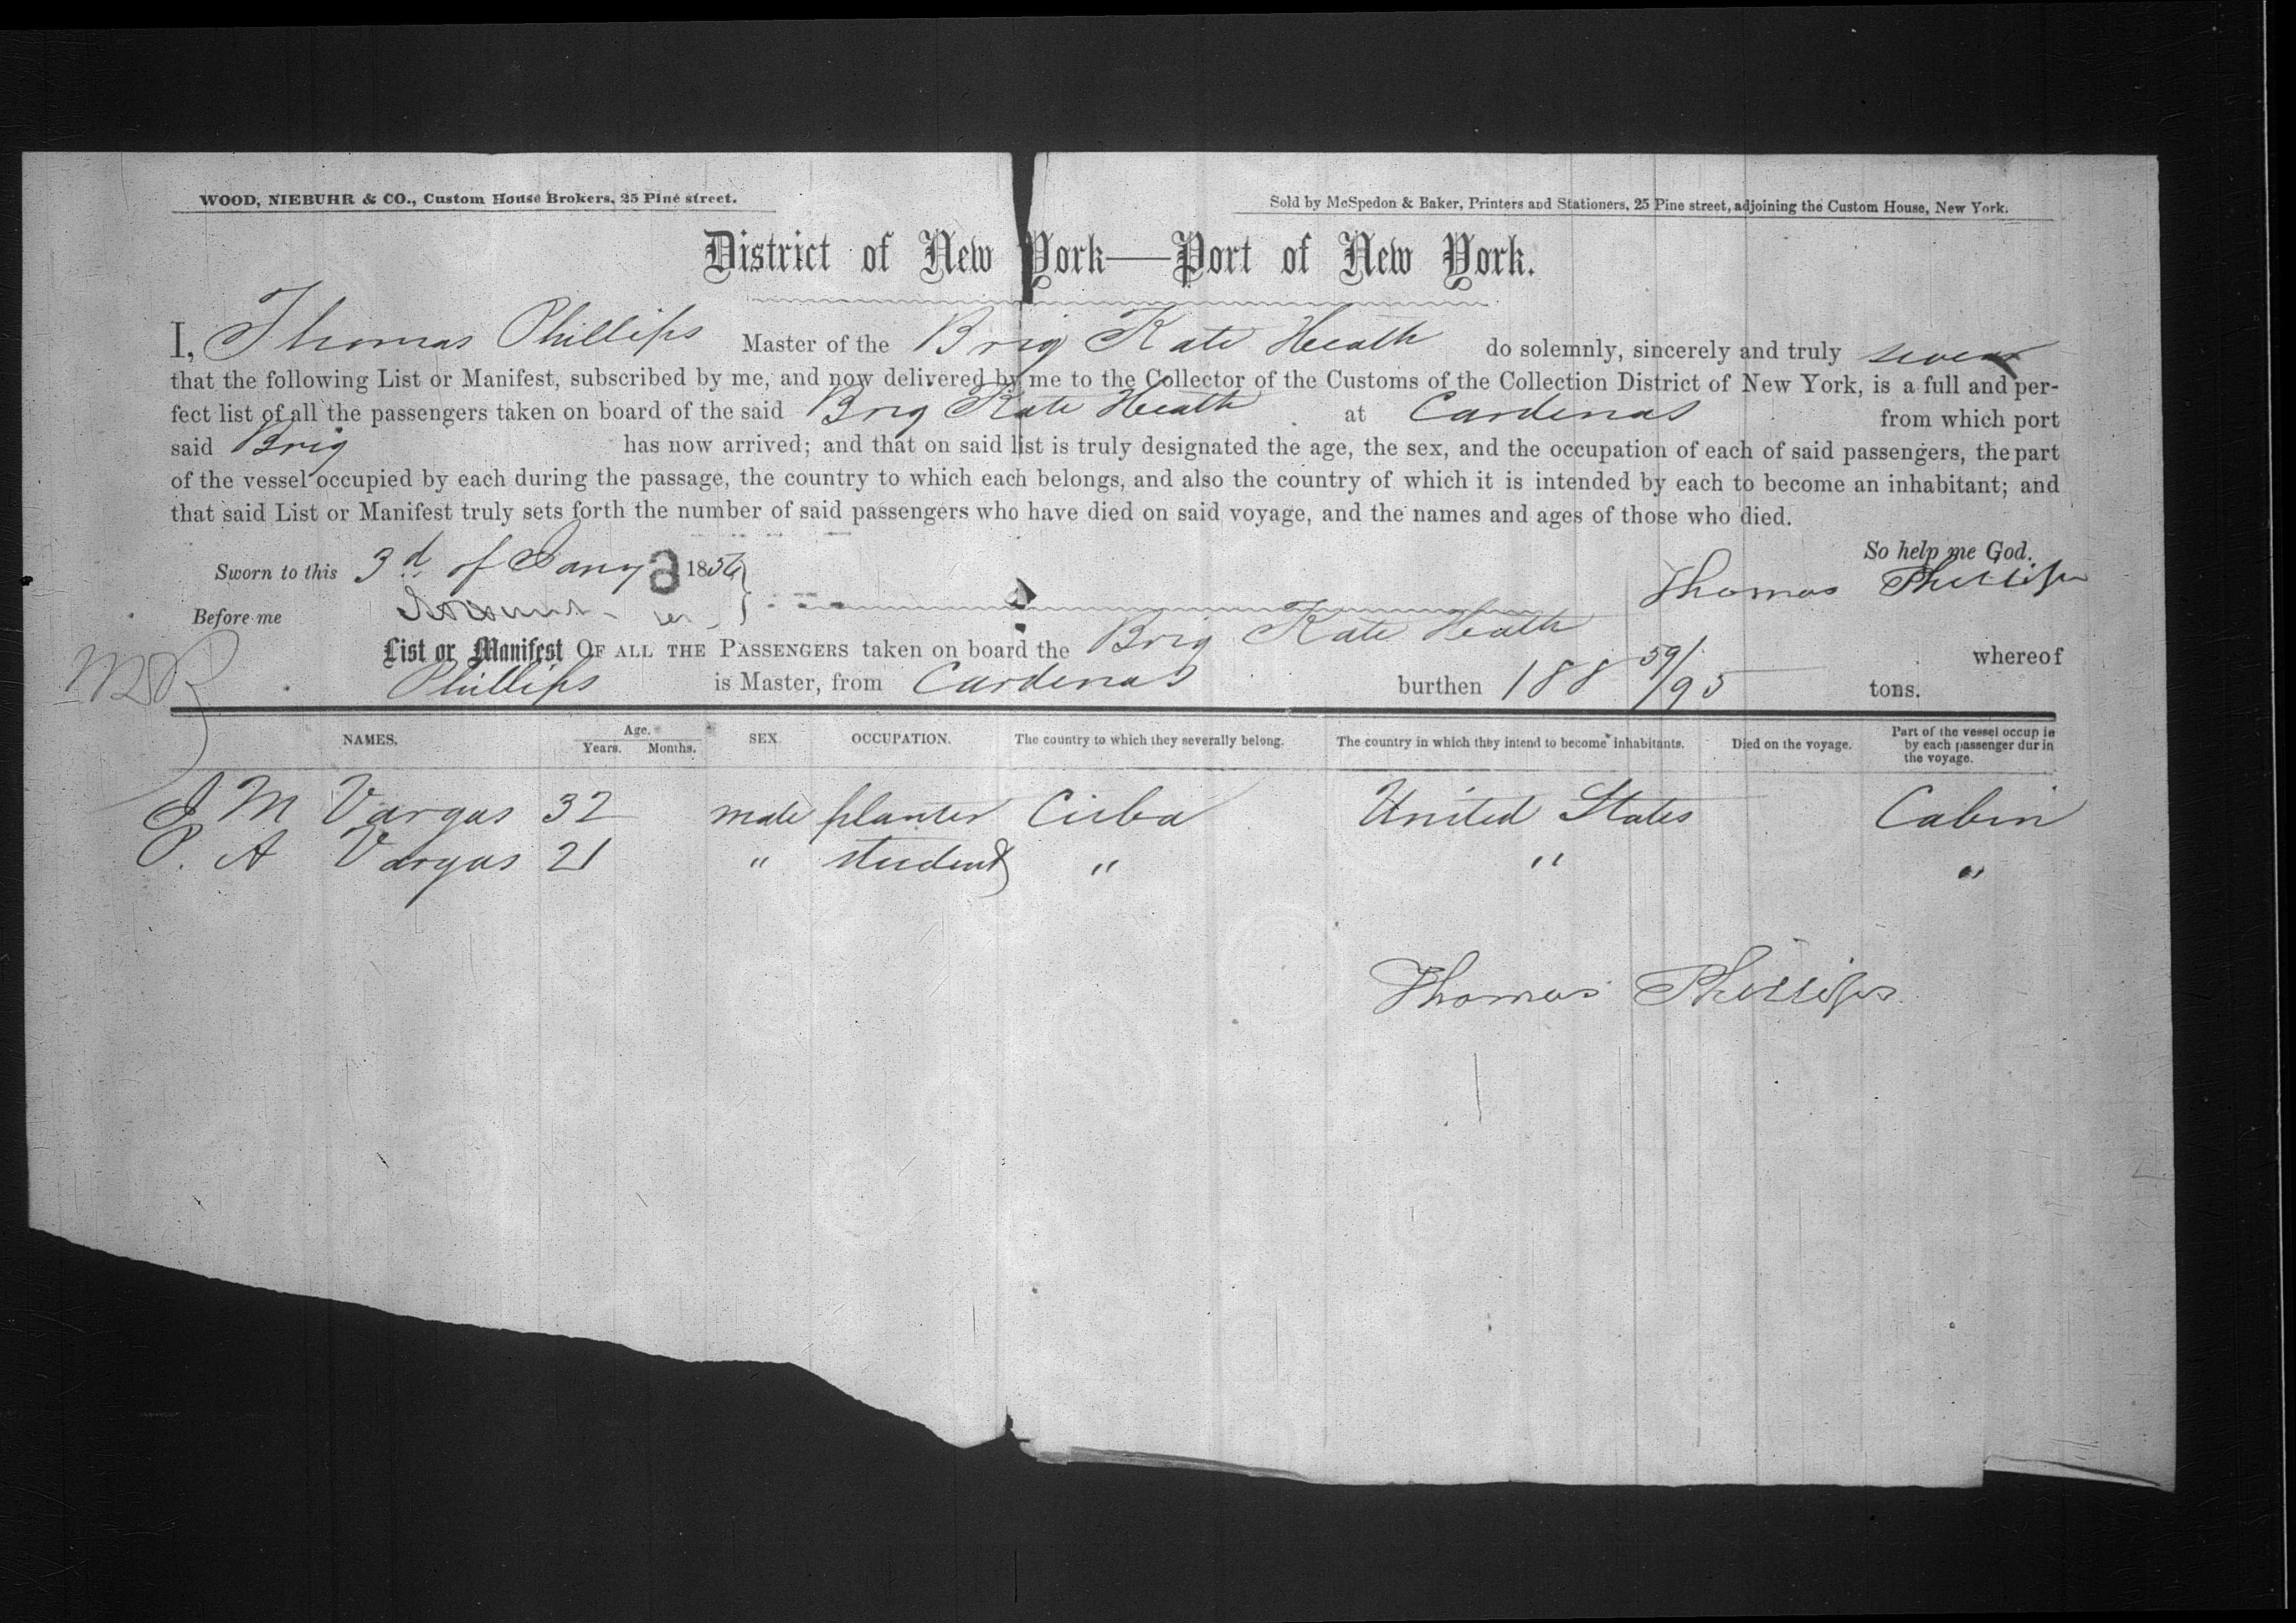 WOOD, NIEBUHR & CO., Custom House Brokers, 25 Pine street.
Sold by McSpedon & Baker, Printers and Stationers, 25 Pine street, adjoining the Custom House, New York.
District of New York—Port of New York.
I, Thomas Phillips Master of the Brig Kate Heath do solemnly, sincerely and truly swear
that the following List or Manifest, subscribed by me, and now delivered by me to the Collector of the Customs of the Collection District of New York, is a full and per-
fect list of all the passengers taken on board of the said Brig Kate Heath at Cardenas from which port
said Brig has now arrived; and that on said list is truly designated the age, the sex, and the occupation of each of said passengers, the part
of the vessel occupied by each during the passage, the country to which each belongs, and also the country of which it is intended by each to become an inhabitant; and
that said List or Manifest truly sets forth the number of said passengers who have died on said voyage, and the names and ages of those who died.
So help me God.
Sworn to this 3d of Jany 1856
Thomas Phillips
Before me
List or Manifest OF ALL THE PASSENGERS taken on board the Brig Kate Heath whereof
Phillips is Master, from Cardenas burthen 188 59/95 tons.
NAMES. Age. Years. Months. SEX. OCCUPATION. The country to which they severally belong. The country in which they intend to become inhabitants. Died on the voyage. Part of the vessel occup ie by each passenger dur in the voyage.
M Vargas 32 male planter Cuba United States Cabin
P. A Vargas 21 " student " " "
Thomas Phillips